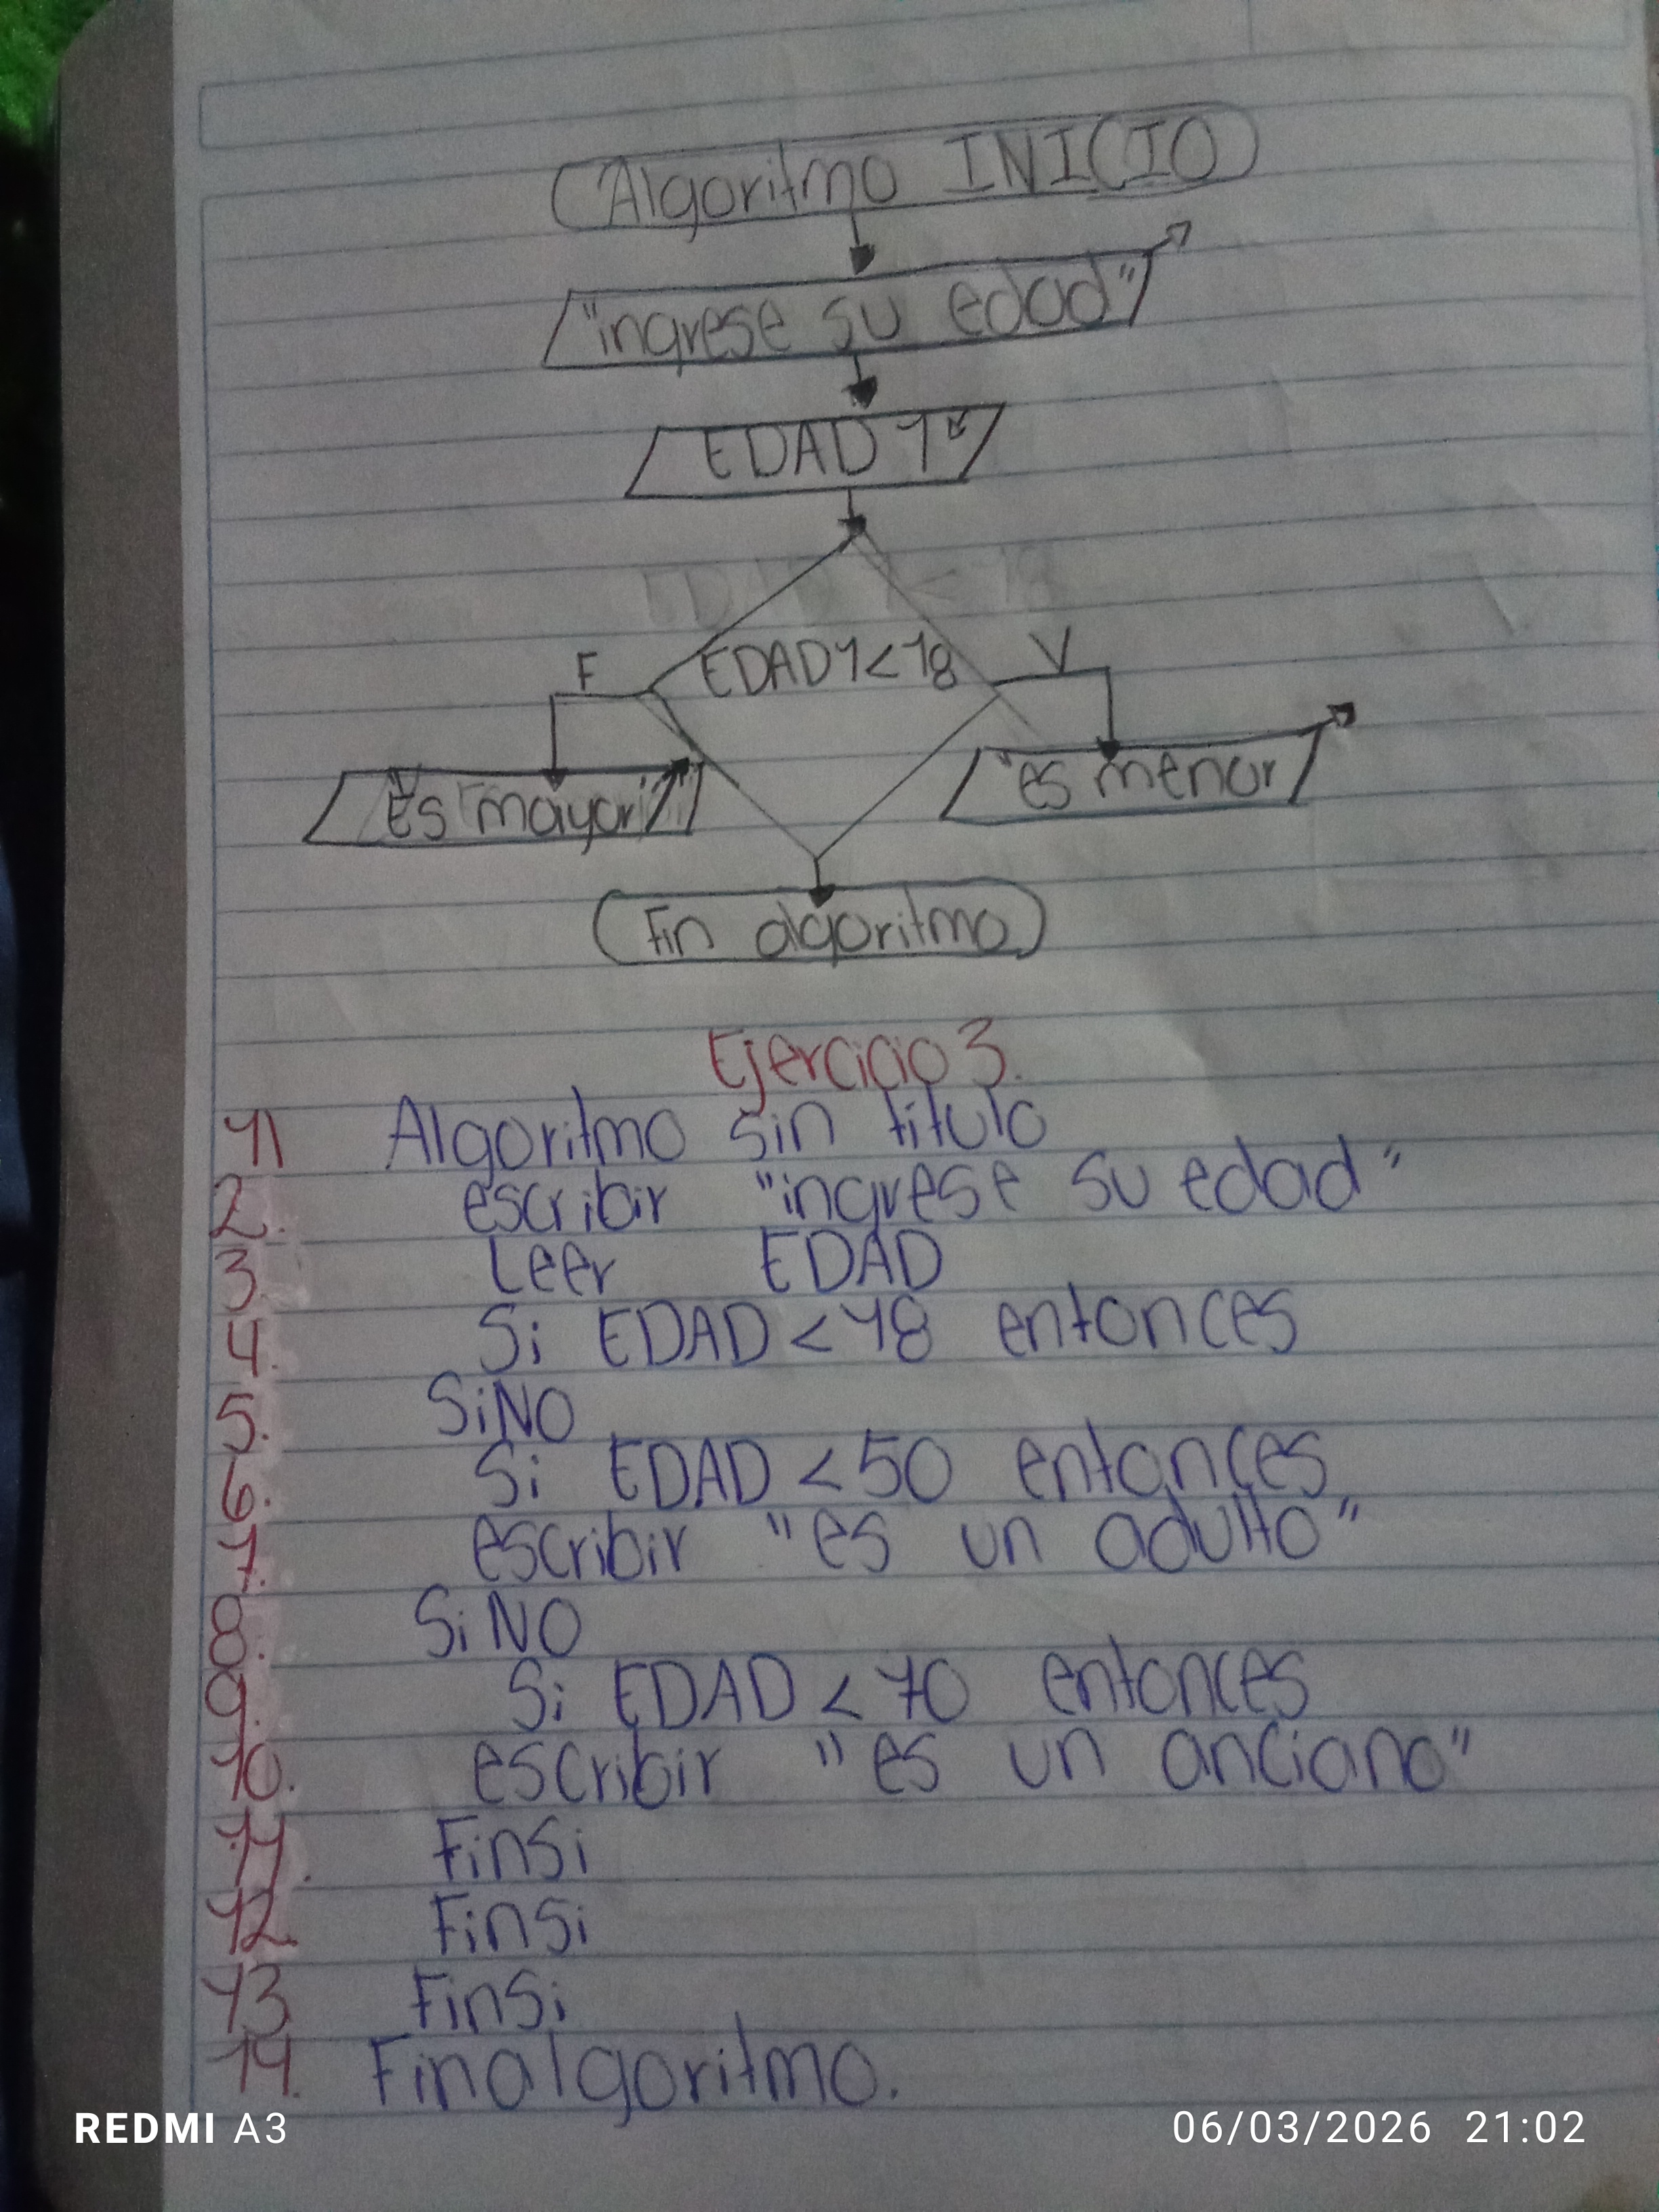 Algoritmo INICIO
"ingrese su edad"
EDAD 1
EDAD1<18
F
V
"es mayor"
"es menor
Fin algoritmo
Ejercicio 3.
1 Algoritmo sin titulo
2. escribir "ingrese su edad"
3. Leer EDAD
4. Si EDAD <18 entonces
5. SiNO
6. Si EDAD <50 entonces
7. escribir "es un adulto"
8. SiNO
9. Si EDAD <70 entonces
10. escribir "es un anciano"
11. FinSi
12. FinSi
13. FinSi
14. Finalgoritmo.
REDMI A3
06/03/2026 21:02